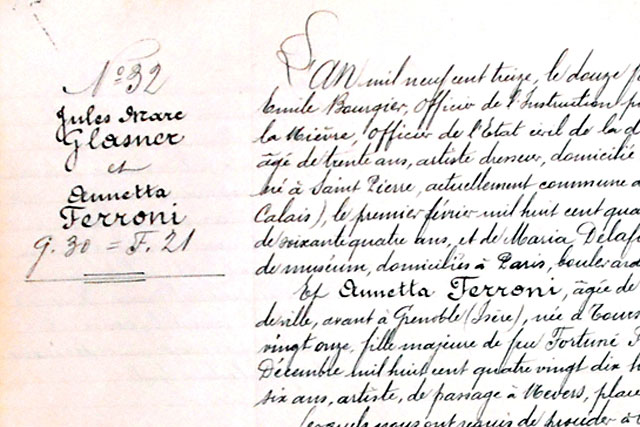 No 32
Jules Marc
Glasner
et
Annetta
Ferroni
g. 30 = F. 21
L'AN mil neuf cent treize, le douze
Emile Bourgier, Officier de l'Instruction
la Nièvre, Officier de l'Etat civil de la
âgé de trente ans, artiste dresseur, domicilié
né à Saint Pierre, actuellement commune
Calais), le premier février mil huit cent
de soixante quatre ans, et de Maria
de muséum, domiciliés à Paris, boulevard
Et Annetta Ferroni, âgée de
de ville, avant à Grenoble (Isère), née à Tours
vingt onze, fille majeure de feu Fortuné
Décembre mil huit cent quatre vingt dix
six ans, artiste, de passage à Nevers, place
lesquels nous ont requis de procéder à